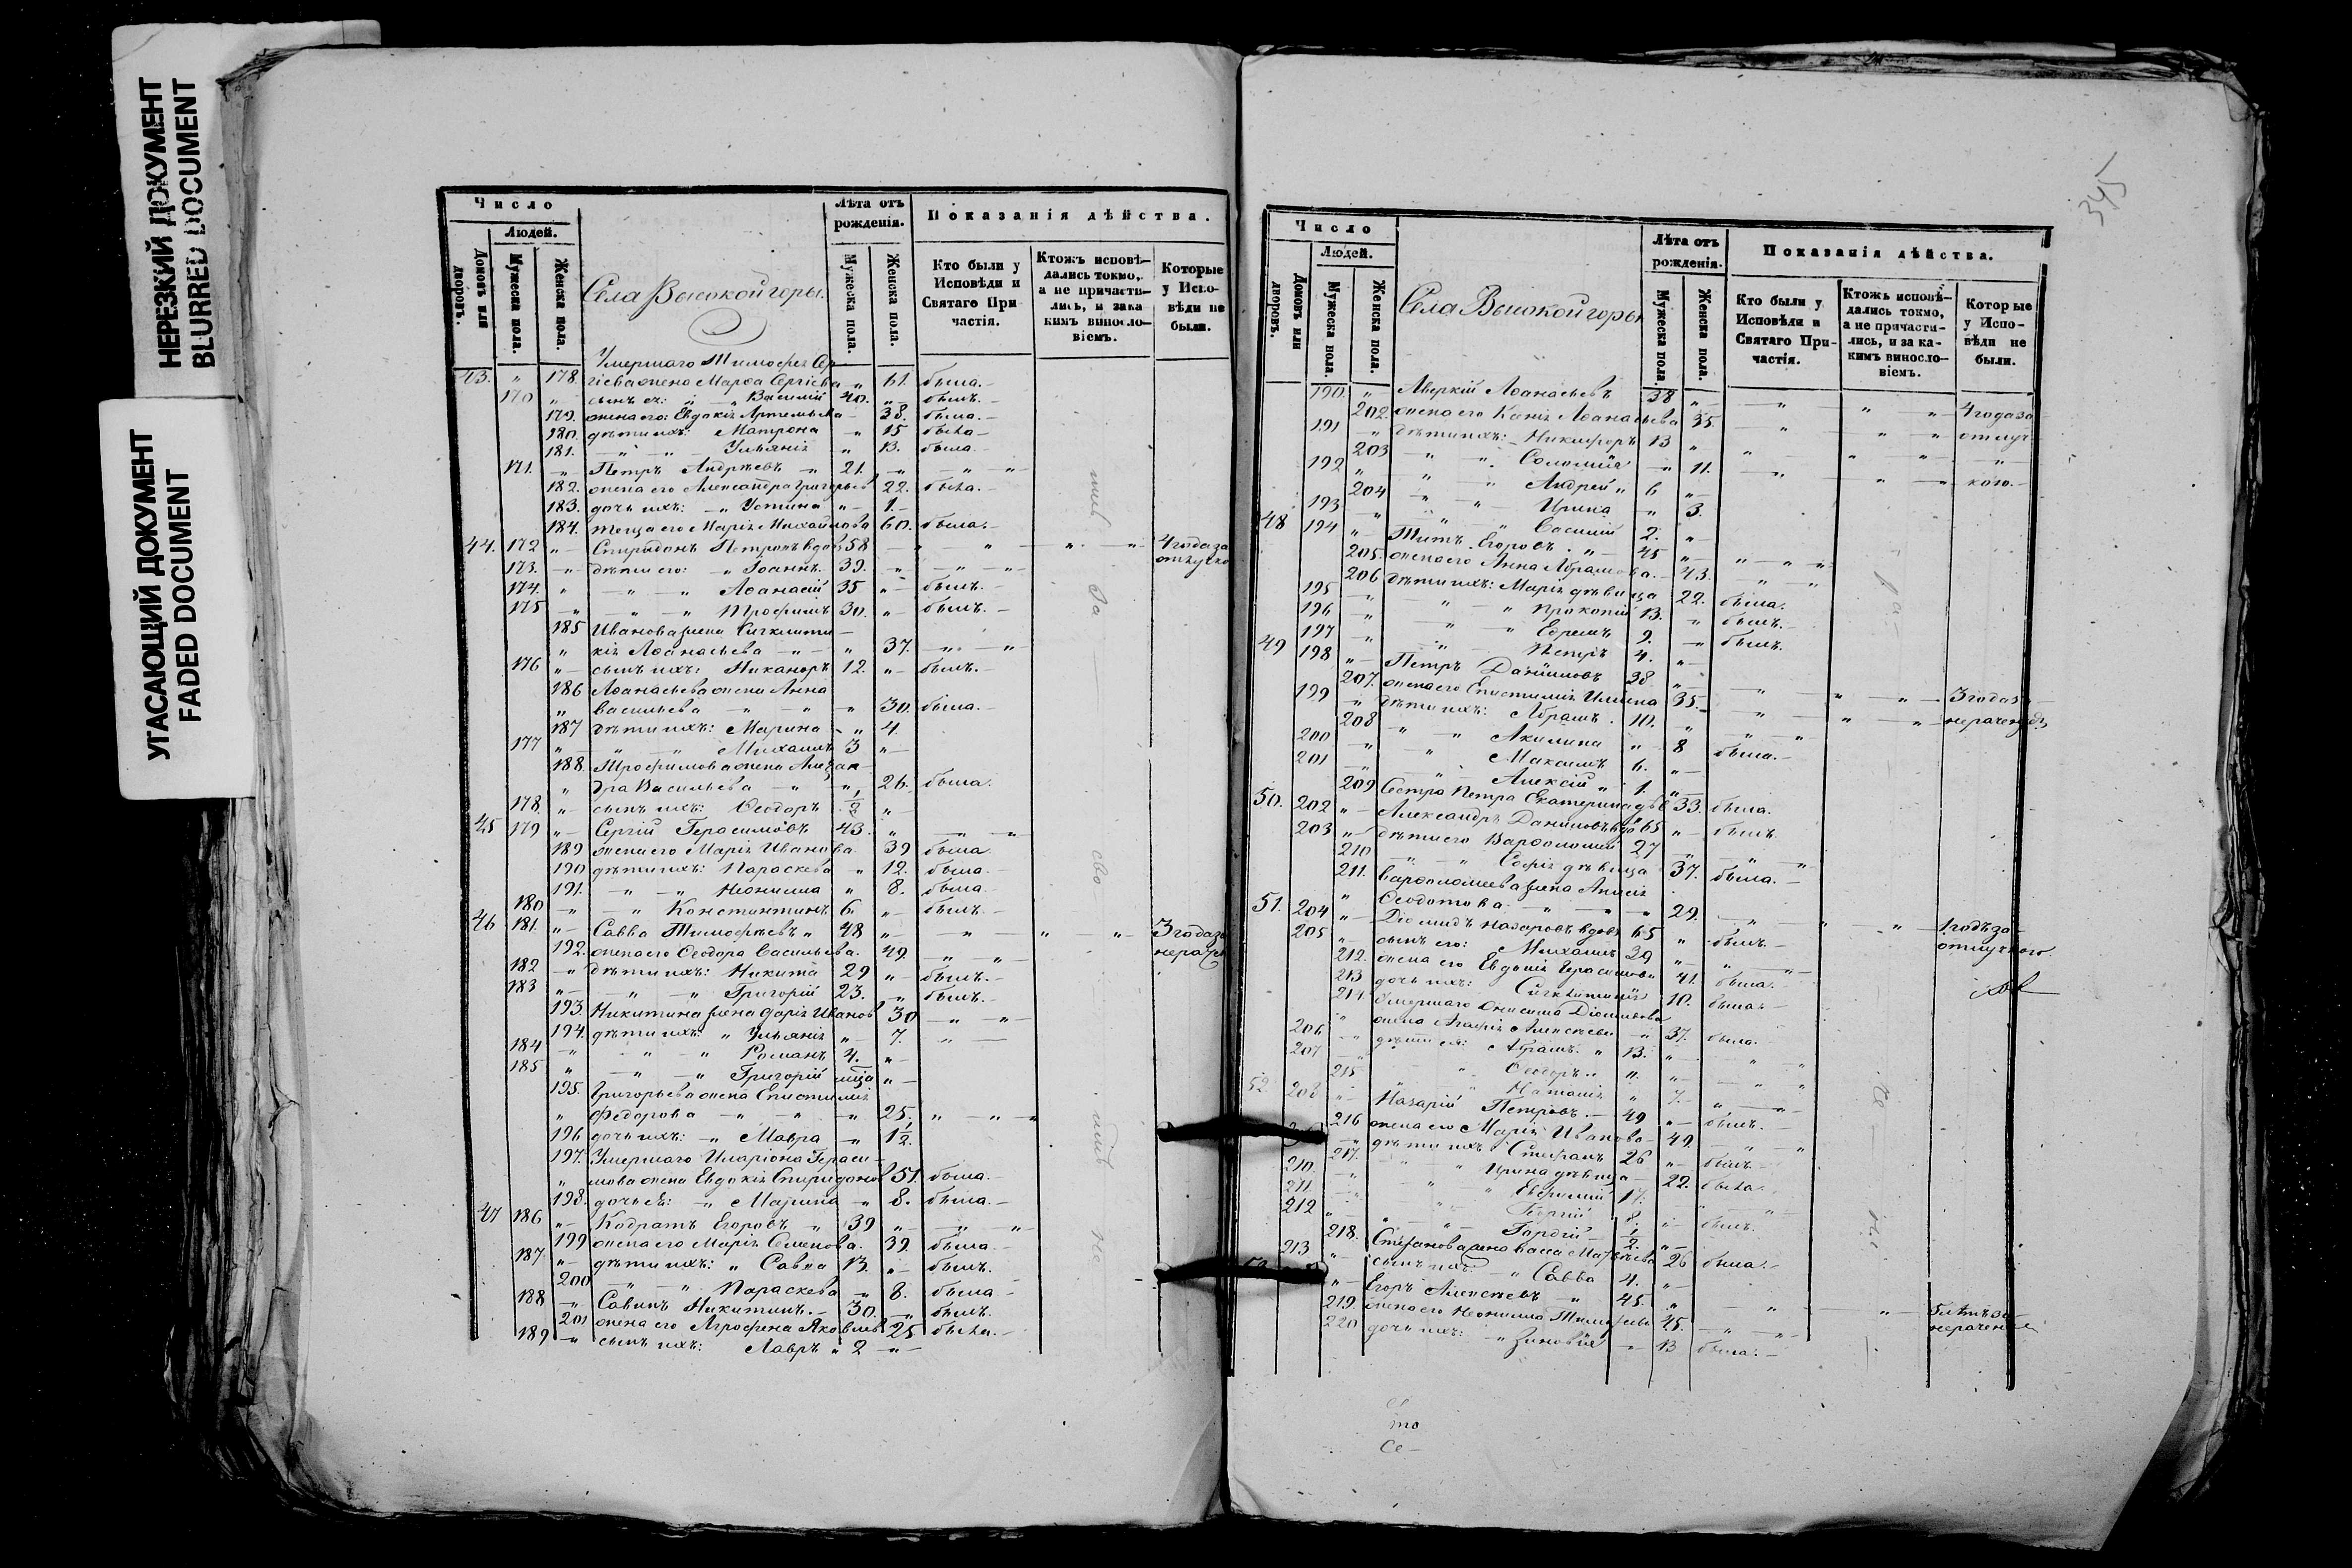 НЕРЕЗКИЙ ДОКУМЕНТ
BLURRED DOCUMENT
УГАСАЮЩИЙ ДОКУМЕНТ
FADED DOCUMENT
Число
Людей.
Домовъ или дворовъ.
Мужеска пола.
Женска пола.
Села Высокой горы.
Лѣта отъ рожденія.
Мужеска пола.
Женска пола.
Показанія дѣйства.
Кто были у Исповѣди и Святаго Причастія.
Ктожъ исповѣдались токмо, а не причастились, и за какимъ винословіемъ.
Которые у Исповѣди не были.
Умершаго Тимофея Сер-
43. " 178. гіева жена Марѳа Сергіева " 61. была.
170 " сынъ ея: " Василій 40. " былъ.
179. жена его: Евдокія Артемьева 38. была.
180. дѣти ихъ: Матрона " 15 была
181. " " Ульянія " 13. была
171. " Петръ Андрѣевъ " 21. " " "
182. жена его Александра Григорьев 22. была.
183. дочь ихъ: " Устина " 1.
184. теща его Марія Михайлова 60. была.
44. 172 " Спиридонъ Петровъ вдов 58 " " " " 4 года за
отлучко
173. " дѣти его: " Іоаннъ. 39. " " "
174. " " " Аѳанасій 35 " былъ.
175 " " " Трофимъ 30. " былъ.
185 Иванова жена Сигклити-
" кія Аѳанасьева " " 37. " "
176 " сынъ ихъ: Никаноръ 12. " былъ.
186 Аѳанасьева жена Анна
" Васильева " " " 30. была.
187 дѣти ихъ: Марина " 4.
177 " " " Михаилъ 3 "
188. Трофимова жена Алексан-
" дра Васильева " " 26. была.
178. " сынъ ихъ: Ѳеодоръ 1/2 "
45 179 " Сергій Герасимовъ 43. " " "
189 жена его Марія Иванова 39 была
190 дѣти ихъ: Параскева " 12. была.
191. " " Неонилла " 8. была
180 " " Константинъ 6. " былъ.
46 181. " Савва Тимофѣевъ " 48 " " " " 3 года за
192. жена его Ѳеодора Васильева. 49. " "
182 " дѣти ихъ: Никита 29 " былъ.
183 " " " Григорій 23. " былъ.
193. Никитина жена Дарія Иванов 30 " "
194. дѣти ихъ: " Ульянія " 7. "
184 " " " Романъ 4. "
185 " " " Григорій "
195. Григорьева жена Епистимія
" Федорова " " " 25. " " "
196 дочь ихъ: " Мавра " 1 1/2.
197. Умершаго Иларіона Гераси-
" мова жена Евдокія Спиридонов 51. была.
198. дочь её: " Марина " 8. была.
47 186 " Кодратъ Егоровъ " 39 " " "
199 жена его Марія Семенова. 39. была.
187. " дѣти ихъ: " Савва 13. " былъ.
200 " " Параскева " 8. была
188 " Савинъ Никитинъ. 30. " былъ.
201 жена его Агрофена Яковлев 25 была.
189 " сынъ ихъ: Лавръ " 2 "
345
Число
Людей.
Домовъ или дворовъ.
Мужеска пола.
Женска пола.
Села Высокой горы
Лѣта отъ рожденія.
Мужеска пола
Женска пола.
Показанія дѣйства.
Кто были у Исповѣди и Святаго Причастія.
Ктожъ исповѣдались токмо, а не причастились, и за какимъ винословіемъ.
Которые у Исповѣди не были.
190. " Аверкій Аѳанасьевъ 38 " " " " 4 года за
202. жена его Ксенія Аѳанасьева 35. " " " отлуч-
191 " дѣти ихъ: Никифоръ 13 " " " " "
203 " " Соломія " 11. " " " кою.
192 " " " Андрей " 6 "
204 " " Ирина " 3.
193 " " " Василій 2. "
48 194 " Титъ Егоровъ. " 45 " " " "
205. жена его Анна Абрамова. 43. " "
206 дѣти ихъ: Марія дѣвица 22. была.
195 " " " Прокопій 13. " былъ.
196 " " " Ефремъ 9. " былъ.
197 " " Петръ 4. "
49 198 " Петръ Даниловъ 38 " " " " 3 года за
207. жена его Епистимія Ильина 35. " " "
199 " дѣти ихъ: Абрамъ. 10. " " "
208 " " Акилина " 8 была.
200 " " Максимъ 6. "
201 " " Алексій " 1. "
209 Сестра Петра Екатерина дѣв 33. была.
50. 202 " Александръ Даниловъ вдо 65 " былъ.
203 " дѣти его Варѳоломей 27 " " "
210 " " Софія дѣвица 37. была.
211. Варѳоломеева жена Анисія
" Ѳеодотова " " " 29. " "
51. 204 " Діомидъ Назаровъ вдов 65 " " 1 годъ за
отлучкою.
205 " сынъ его: Михаилъ 39 " былъ.
212. жена его Евдокія Герасимова 41. была.
213 дочь ихъ: Сигклитикія 10. была.
214 Умершаго Онисима Діомидова
" жена Агафія Алексѣева " 37. была.
206 " дѣти ея: Абрамъ. " 13. " "
207 " " Ѳеодоръ. " 11. " "
215 " " Наталія " 7. " "
52 208 " Назарій Петровъ. 49 " былъ.
216 жена его Марія Иванова 49. " "
" дѣти ихъ Стефанъ 26 " былъ.
217. " " Ирина дѣвица 22. была.
210. " " Евфимій 17. " "
211. " " Георгій 8. " былъ.
212 " " Гордій 1/2. "
218. Стефанова жена Васса Матвѣева 26 была.
213 " сынъ ихъ: " Савва 4. "
" Егоръ Алексѣевъ " 45. " " " 5 лѣтъ за
219. жена его Неонилла Тимофеева 45. " "
220 дочь ихъ: " Зиновія " 13 была.
то
Се